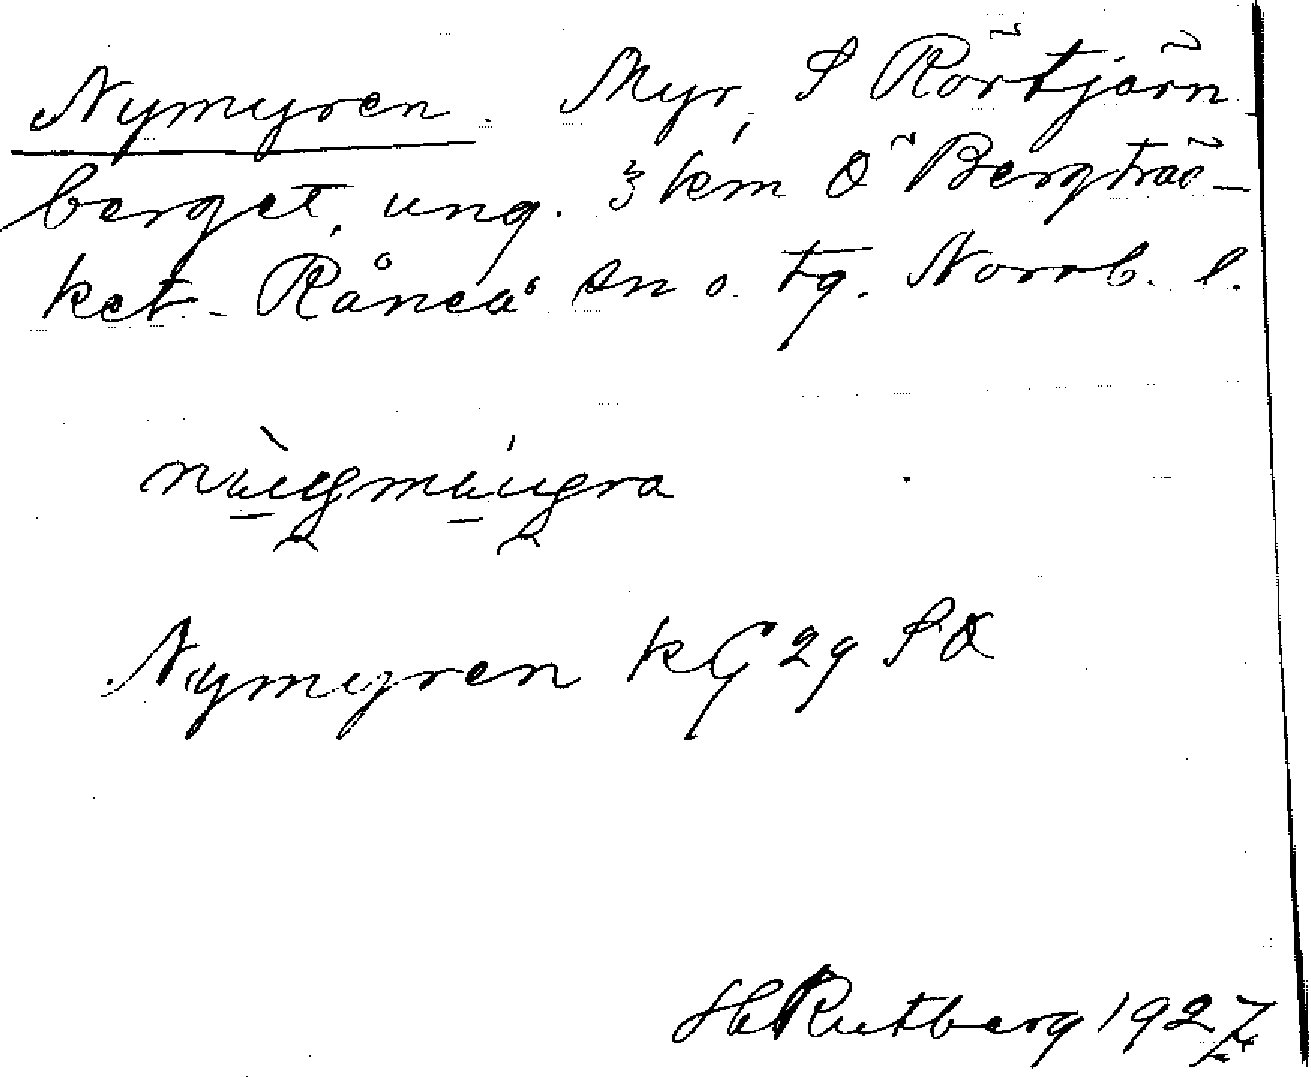 Nymyren. Myr, S Rörtjärn
berget, ung. 3 km Ö Bergträs-
ket. Råneå sn o. tg. Norrb. l.
Nymyren kG 29 SO
H Rutberg 1927